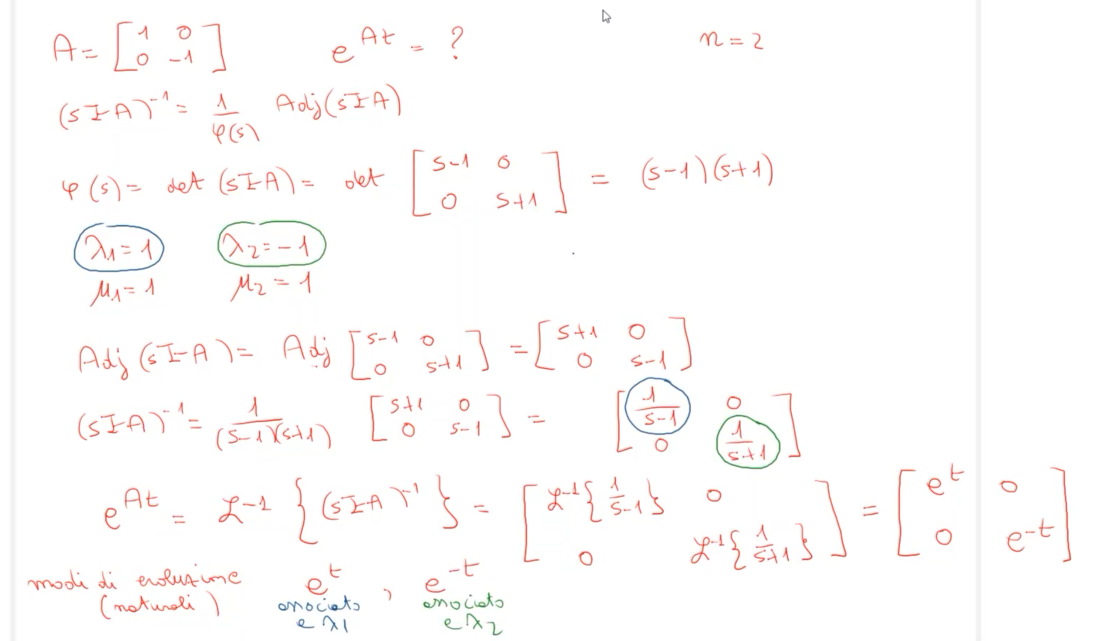 A = [1 0; 0 -1] e^{At} = ? n = 2
(sI-A)^{-1} = 1/φ(s) Adj(sI-A)
φ(s) = det (sI-A) = det [s-1 0; 0 s+1] = (s-1)(s+1)
λ1 = 1 λ2 = -1
μ1 = 1 μ2 = 1
Adj (sI-A) = Adj [s-1 0; 0 s+1] = [s+1 0; 0 s-1]
(sI-A)^{-1} = 1/((s-1)(s+1)) [s+1 0; 0 s-1] = [1/(s-1) 0; 0 1/(s+1)]
e^{At} = ℒ^{-1} {(sI-A)^{-1}} = [ℒ^{-1}{1/(s-1)} 0; 0 ℒ^{-1}{1/(s+1)}] = [e^t 0; 0 e^{-t}]
modi di evoluzione e^t , e^{-t}
(naturali) associato associato
a λ1 a λ2